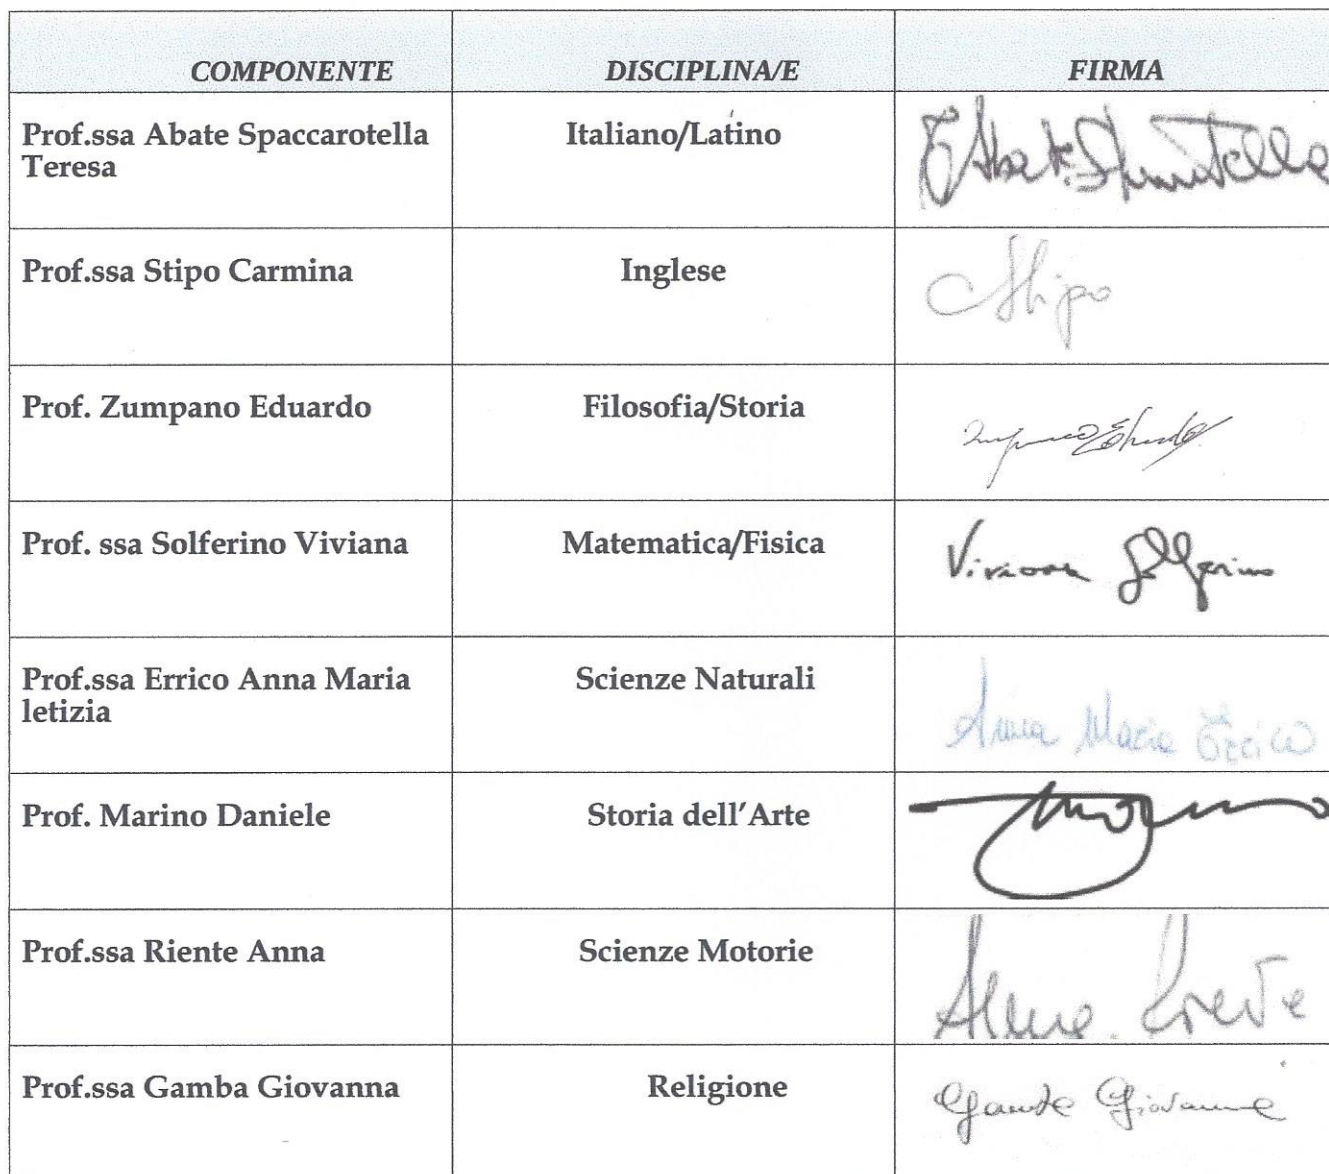 COMPONENTE DISCIPLINA/E FIRMA
Prof.ssa Abate Spaccarotella Italiano/Latino
Teresa
Prof.ssa Stipo Carmina Inglese Stipo
Prof. Zumpano Eduardo Filosofia/Storia
Prof. ssa Solferino Viviana Matematica/Fisica Viviana Solferino
Prof.ssa Errico Anna Maria Scienze Naturali Anna Maria Errico
letizia
Prof. Marino Daniele Storia dell'Arte
Prof.ssa Riente Anna Scienze Motorie
Prof.ssa Gamba Giovanna Religione Gamba Giovanna